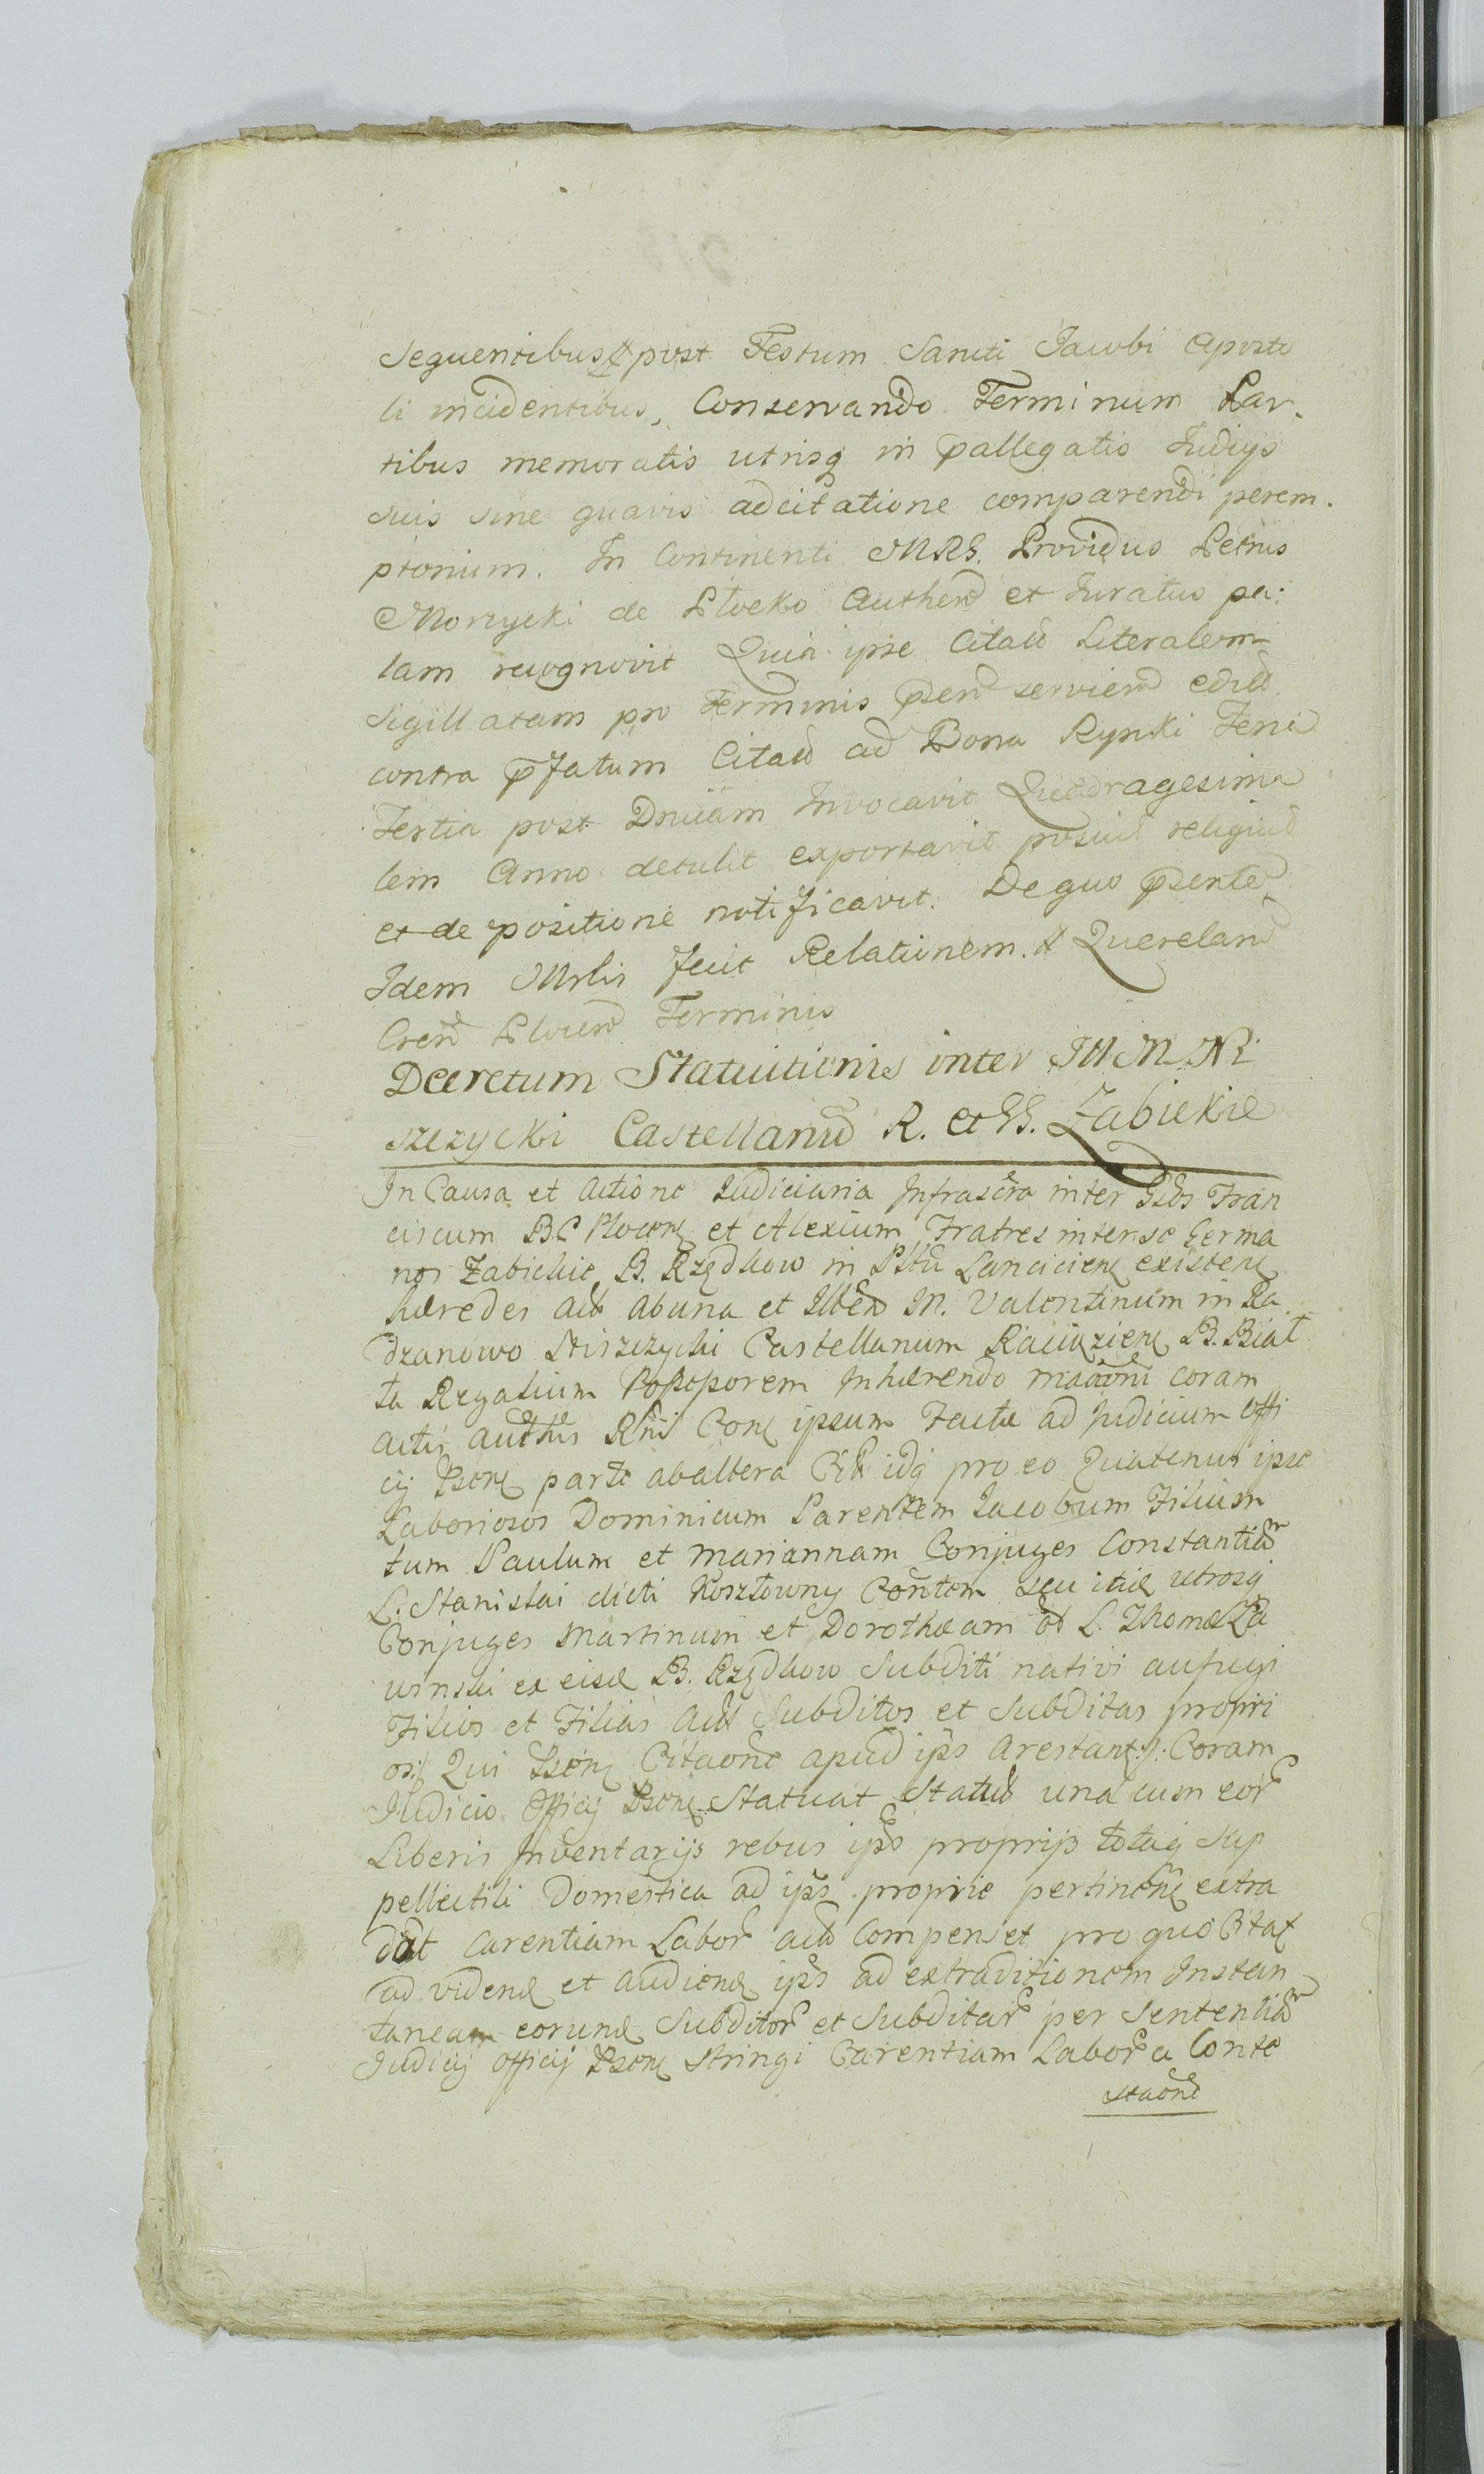 sequentibus post Festum Sancti Jacobi Aposto
li incidentibus, Conservando Terminum Par-
tibus memoratis utrisq in pallegatis Judicijs
suis sine quavis adcitatione comparendi perem-
ptorium. In Continenti MRS. Providus Petrus
Morzycki de Plocko Authen et Juratus pa:
lam recognovit Quia ipse Citaõ Literalem
Sigillatam pro Terminis psen servien edid
contra pfatum Citað ad Bona Rypki Feria
Tertia post Dnicam Invocavit Quadragesima
lem Anno detulit exportavit posuit reliquit
et de positione notificavit. De quo psente
Idem Mrlis fecit Relationem. A Querelan
Cren Plocen Terminis
Decretum Statuitionis inter JM M. Ni
szczycki Castellanum R. et GG. Zabickie
In Causa et Actione Judiciaria Infrascra inter Gsos Fran
ciscum B.C. Plocen et Alexium Fratres inter se Germa
nos Zabickie B. Rzędkow in Pttu Lancicien existen
hæredes Act ab una et Illrem M. Valentinum in Ra
dzanowo Niszczycki Castellanum Raciązien B. Biał
ta Regalium Possporem Inhærendo maõni coram
actis authis Rni Con ipsum Facta ad Judicium offi
cij Psen parte ab altera Cit idq pro eo Quatenus ipse
Laboriosos Dominicum Parentem Jacobum Filium
tum Paulum et Mariannam Conjuges Constantiam
L. Stanislai dicti Kosztowny Contem seu itid utrosq
Conjuges Martinum et Dorotheam et L. Thomæ Za
winski ex eisd B. Rzędkow Subditi nativi aufugi
Filios et Filias Act Subditos et Subditas propri
os Qui Psen Citaone apud ips Arestant:/. Coram
Judicio Officij Psen Statuat Statut una cum eor
Liberis Inventarijs rebus ips proprijs totaq sup
pellectili Domestica ad ips proprie pertinen extra
dat Carentiam Labor act Compenset pro quo Citat
ad viden et audien ips ad extraditionem Instan
taneam eorund Subditor et Subditar per Sententiam
Judicij Officij Psen Stringi Carentiam Labor a Conte
staone